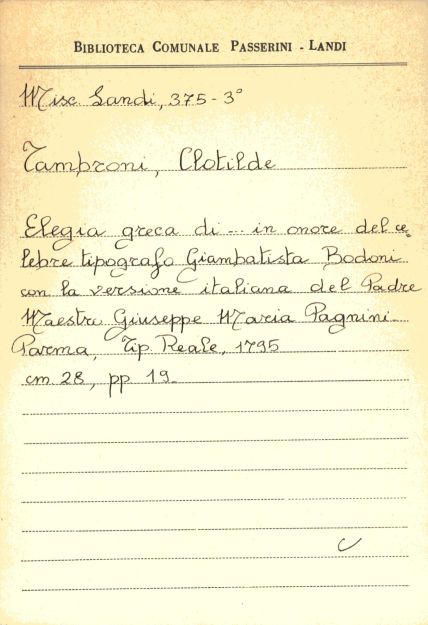 BIBLIOTECA COMUNALE PASSERINI - LANDI
Misc. Landi, 375-3°
Tambroni, Clotilde
Elegia greca di ... in onore del ce=
lebre tipografo Giambatista Bodoni
con la versione italiana del Padre
Maestro Giuseppe Maria Pagnini-
Parma, Tip. Reale, 1795
cm. 28, pp 19-
C